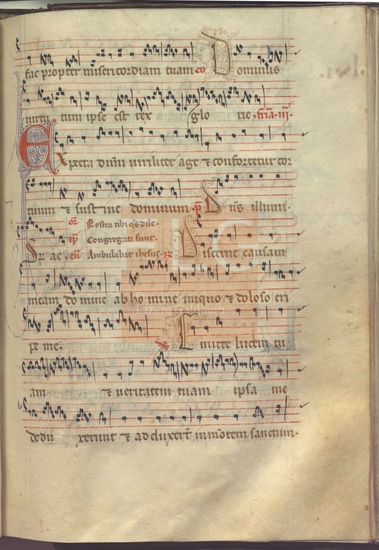 fac propter misericordiam tuam co Dominus
virtutum ipse est rex glo rie fria iii
Expecta dnm viriliter age & confortetur cor
tuum & susti ne dominum ps Dns illumi
of Nostra tibi qs dne
ep Congregati sunt
Gr ac eu Ambulabat ihesus Discerne causam
meam do mine ab ho mine iniquo & doloso eri
pe me Emitte lucem tu
am & veritatem tuam ipsa me
dedu xerunt & adduxert in motem sanctum